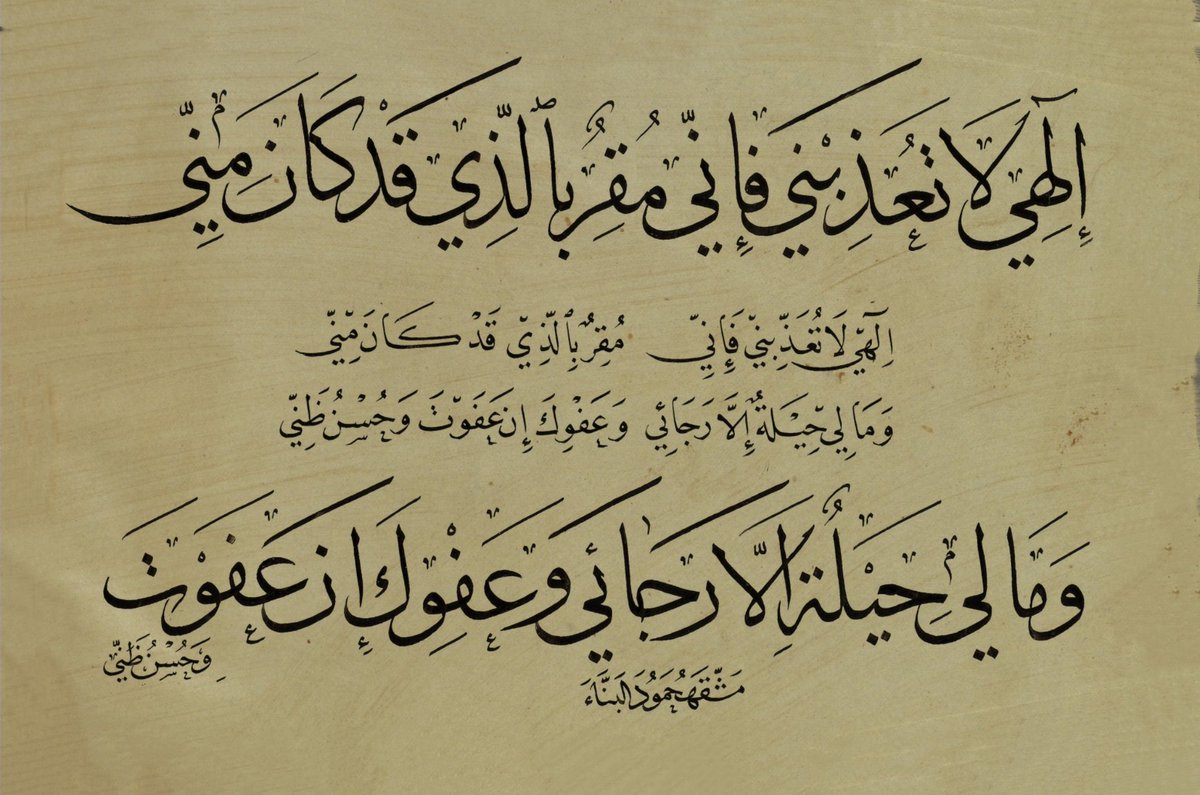 إِلٰهِي لَا تُعَذِّبْنِي فَإِنِّي مُقِرٌّ بِٱلَّذِي قَدْ كَانَ مِنِّي
إِلٰهِي لَا تُعَذِّبْنِي فَإِنِّي مُقِرٌّ بِٱلَّذِي قَدْ كَانَ مِنِّي
وَمَا لِي حِيْلَةٌ إِلَّا رَجَائِي وَعَفْوِكَ إِنْ عَفَوْتَ وَحُسْنُ ظَنِّي
وَمَا لِي حِيْلَةٌ إِلَّا رَجَائِي وَعَفْوِكَ إِنْ عَفَوْتَ
وَحُسْنُ ظَنِّي
مَشَقَهُ حَمُودُ البَنَّاءَ